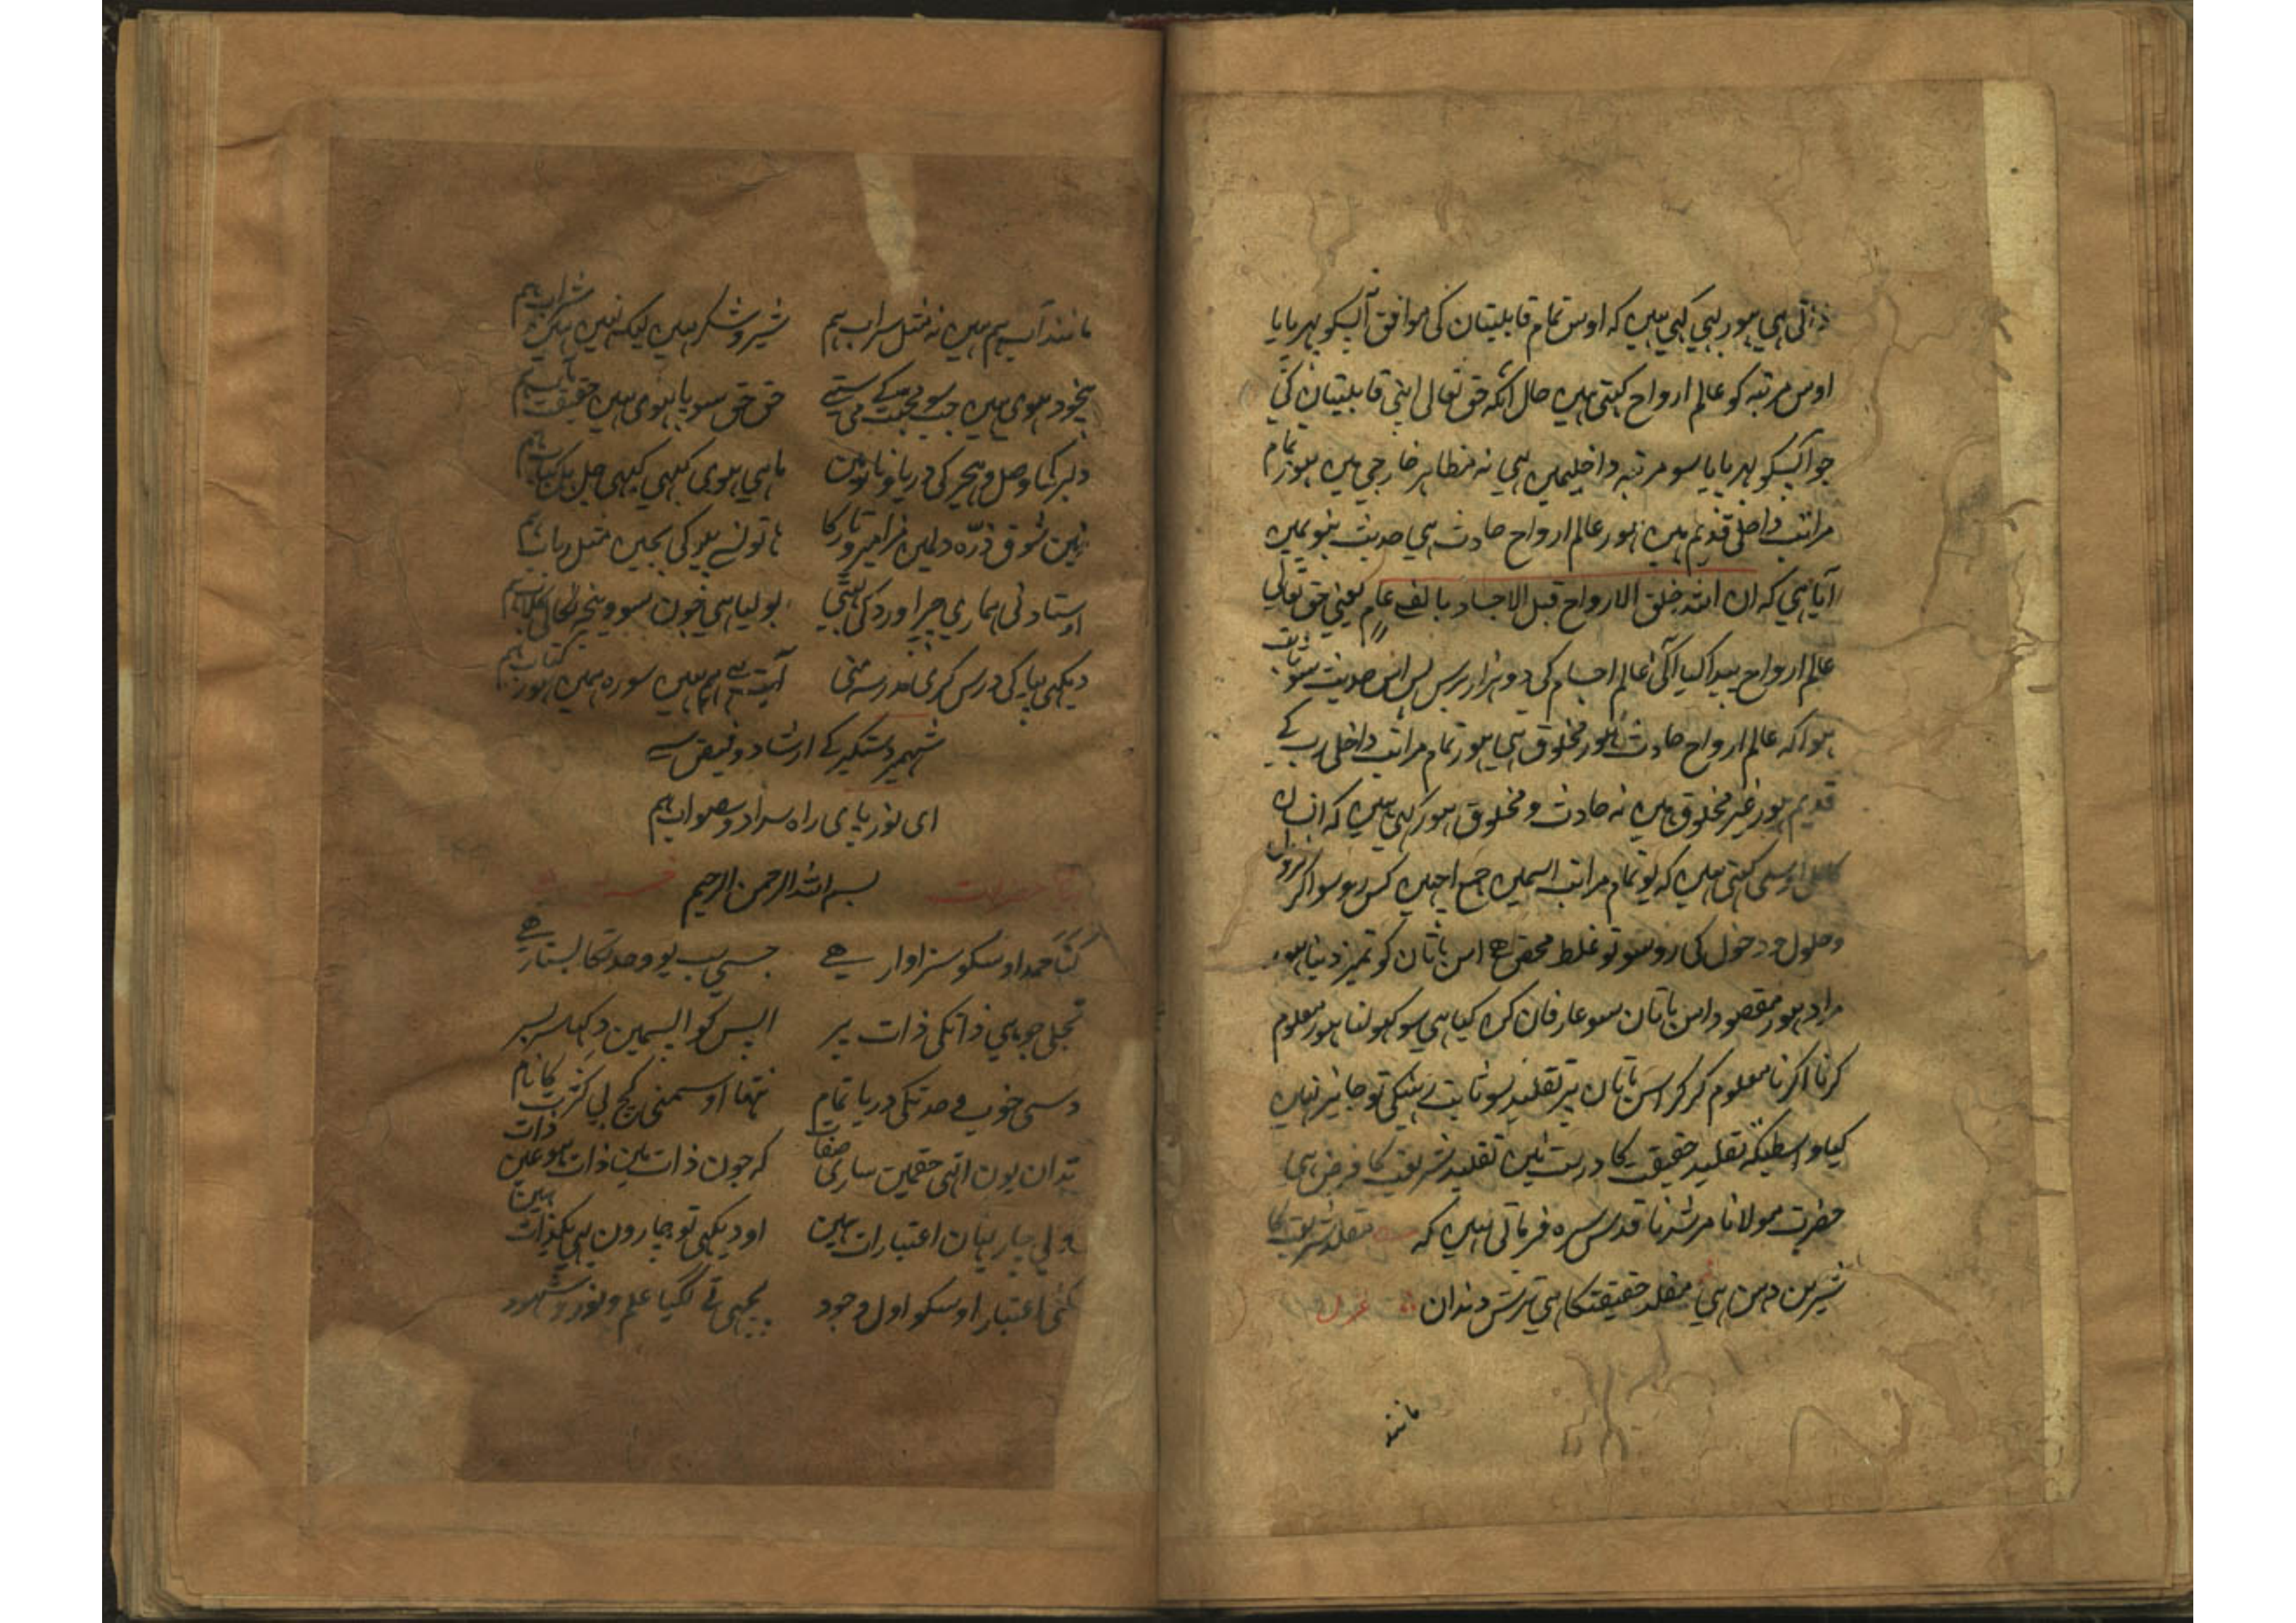 ذاتی ہی ہور یہی کہی ہیں کہ اوس تمام قابلیتان کی موافق آپسکو بہر پایا
اوس مرتبہ کو عالم ارواح کہتی ہیں حال آنکہ حق تعالی اپنی قابلیتان کی
جو آپسکو بہر پایا سو مرتبہ داخلیمیں ہی نہ مظاہر خارجی میں ہور تمام
مراتب داخلی قدیم ہیں ہور عالم ارواح حادث ہی حدیث نبویمیں
آیا ہی کہ ان الله خلق الارواح قبل الاجساد بالفی عام یعنی حق تعالی
عالم ارواح پیدا کیا آگی عالم اجسام کی دو ہزار برس پس اس حدیث سو ثابت
ہوا کہ عالم ارواح حادث ہور مخلوق ہی ہور تمام مراتب داخلی رب کے
قدیم ہور غیر مخلوق ہیں نہ حادث و مخلوق ہور کہی ہیں کہ انسان
کامل اوسی کہتی ہیں کہ یو تمام مراتب اسمیں جمع اچہیں کس رو سو اگر نزول
و حلول و دخول کی رو سو تو غلط محض ہے اس باتان کو تمیز دنیا ہور
مراد ہور مقصود اس باتان سو عارفان کن کیا ہی سو کھولنا ہور معلوم
کرنا اگر نا معلوم کر کر اس باتان پر تقلید سو ثابت رہینگی تو جائیز نہیں
کیا واسطیکہ تقلید حقیقت کا درست نہیں تقلید شریعت کا فرض ہی
حضرت مولانا مرشدنا قدس سره فرماتی ہیں کہ مقلد شریعت کا
شیرین دہن ہی مقلد حقیقتکا ہی ترش دندان غزل
مانند
مانند آب ہم ہیں نہ مثل سراب ہم شیر و شکر ہیں لیک نہیں ہیں شراب ہم
بیخود ہوی ہیں جب سو محبت کے می ستے حق حق سو پا ہوی ہیں حقیقت مآب ہم
دلبر کا وصل و ہجر کی دریا و نار میں ماہی ہوی کہی کہی جل بل کباب ہم
نہیں شوق ذرہ دلمیں مزامیر و تار کا ہاتو نسے پیو کی بجیں مثل رباب ہم
اوستاد نی ہماری جو اورد کی بولیا ہی خون سو
دیکہی پیا کی درس کری مدرسہ منی آیت سے ہم ہیں سوره ہمیں ہور کتاب ہم
شہمیر دستگیر کے ارشاد و فیض سے
ای نور پای راه سداد و صواب ہم
بسم الله الرحمن الرحیم
ثنا حمد اوسکو سزاوار ہے جسی سب یو وحدتکا بستار ہے
تجلی جو ہی ذاتکی ذات پر اپس کو اپسمیں دکہا سربسر
دسی خوب وحدتکی دریا تمام نتہا اوسمنی کچ بی کثرت کا نام
تدان یون اتہی حقمیں ساری صفات کہ جون ذات میں ذات ہو عین ذات
ولی چار نہان اعتبارات ہیں او دیکہی تو چارون ہی یکذات ہیں
گنی اعتبار اوسکو اول وجود پچہی تے لگیا علم و نور و شہود